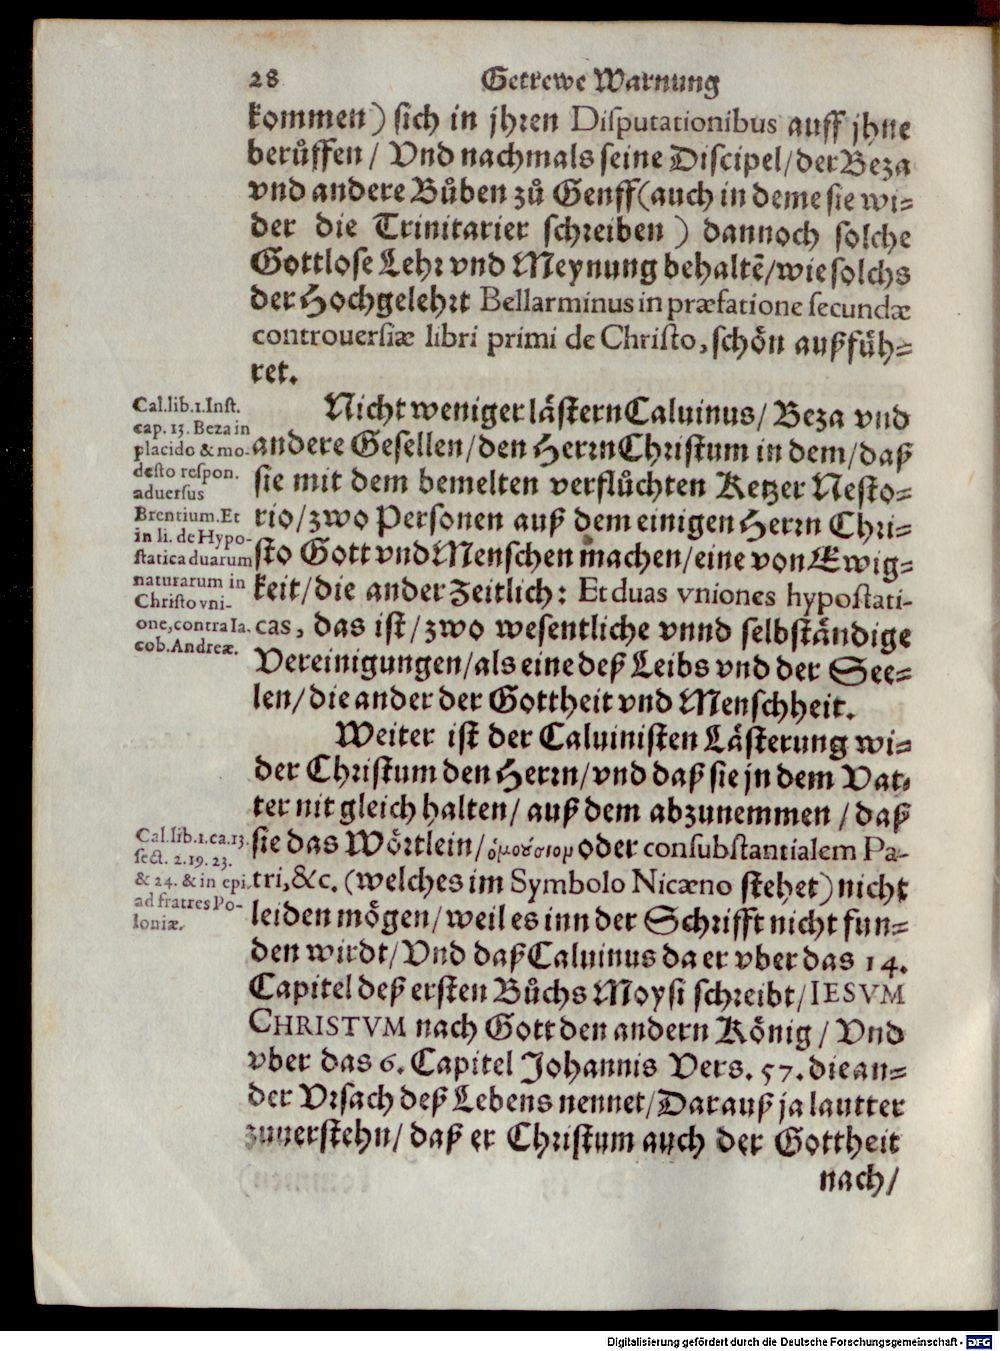 28 Getrewe Warnung
kommen) sich in jhren Disputationibus auff jhne
berůffen / Vnd nachmals seine Discipel/ der Beza
vnd andere Bůben zů Genff (auch in deme sie wi-
der die Trinitarier schreiben) dannoch solche
Gottlose Lehr vnd Meynung behaltẽ/ wie solchs
der Hochgelehrt Bellarminus in præfatione secundæ
controuersiæ libri primi de Christo, schön außfüh-
ret.
Nicht weniger lästern Caluinus/ Beza vnd
andere Gesellen/ den Herrn Christum in dem/ daß
sie mit dem bemelten verflůchten Ketzer Nesto-
rio/ zwo Personen auß dem einigen Herrn Chri-
sto Gott vnd Menschen machen/ eine von Ewig-
keit/ die ander Zeitlich: Et duas vniones hypostati-
cas, das ist/ zwo wesentliche vnnd selbständige
Vereinigungen/ als eine deß Leibs vnd der See-
len/ die ander der Gottheit vnd Menschheit.
Cal. lib. 1. Inst.
cap. 13. Beza in
placido & mo-
desto respon.
aduersus
Brentium. Et
in li. de Hypo-
statica duarum
naturarum in
Christo vni-
one, contra Ia.
cob. Andreæ.
Weiter ist der Caluinisten Lästerung wi-
der Christum den Herrn/ vnd daß sie jn dem Vat-
ter nit gleich halten/ auß dem abzunemmen / daß
sie das Wörtlein/ ὁμούσιομ oder consubstantialem Pa-
tri, &c. (welches im Symbolo Nicæno stehet) nicht
leiden mögen/ weil es inn der Schrifft nicht fun-
den wirdt/ Vnd daß Caluinus da er vber das 14.
Capitel deß ersten Bůchs Moysi schreibt/ IESVM
CHRISTVM nach Gott den andern König / Vnd
vber das 6. Capitel Johannis Vers. 57. die an-
der Vrsach deß Lebens nennet/ Darauß ja lautter
zuuerstehn/ daß er Christum auch der Gottheit
nach/
Cal. lib. 1. ca. 13.
sect. 2. 19. 23.
& 24. & in epi.
ad fratres Po-
loniæ.
Digitalisierung gefördert durch die Deutsche Forschungsgemeinschaft - DFG